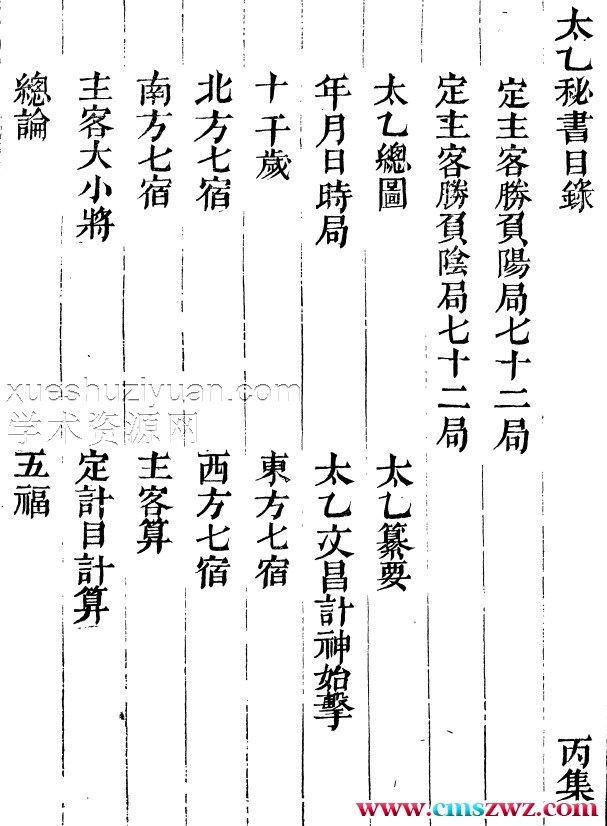 太乙秘書目錄 丙集
定主客勝負陽局七十二局
定主客勝負陰局七十二局
太乙總圖 太乙纂要
年月日時局 太乙文昌計神始擊
十干歲 東方七宿
北方七宿 西方七宿
南方七宿 主客算
主客大小將 定計目計算
總論 五福
xueshuziyuan.com
学术资源网
www.cmszwz.com